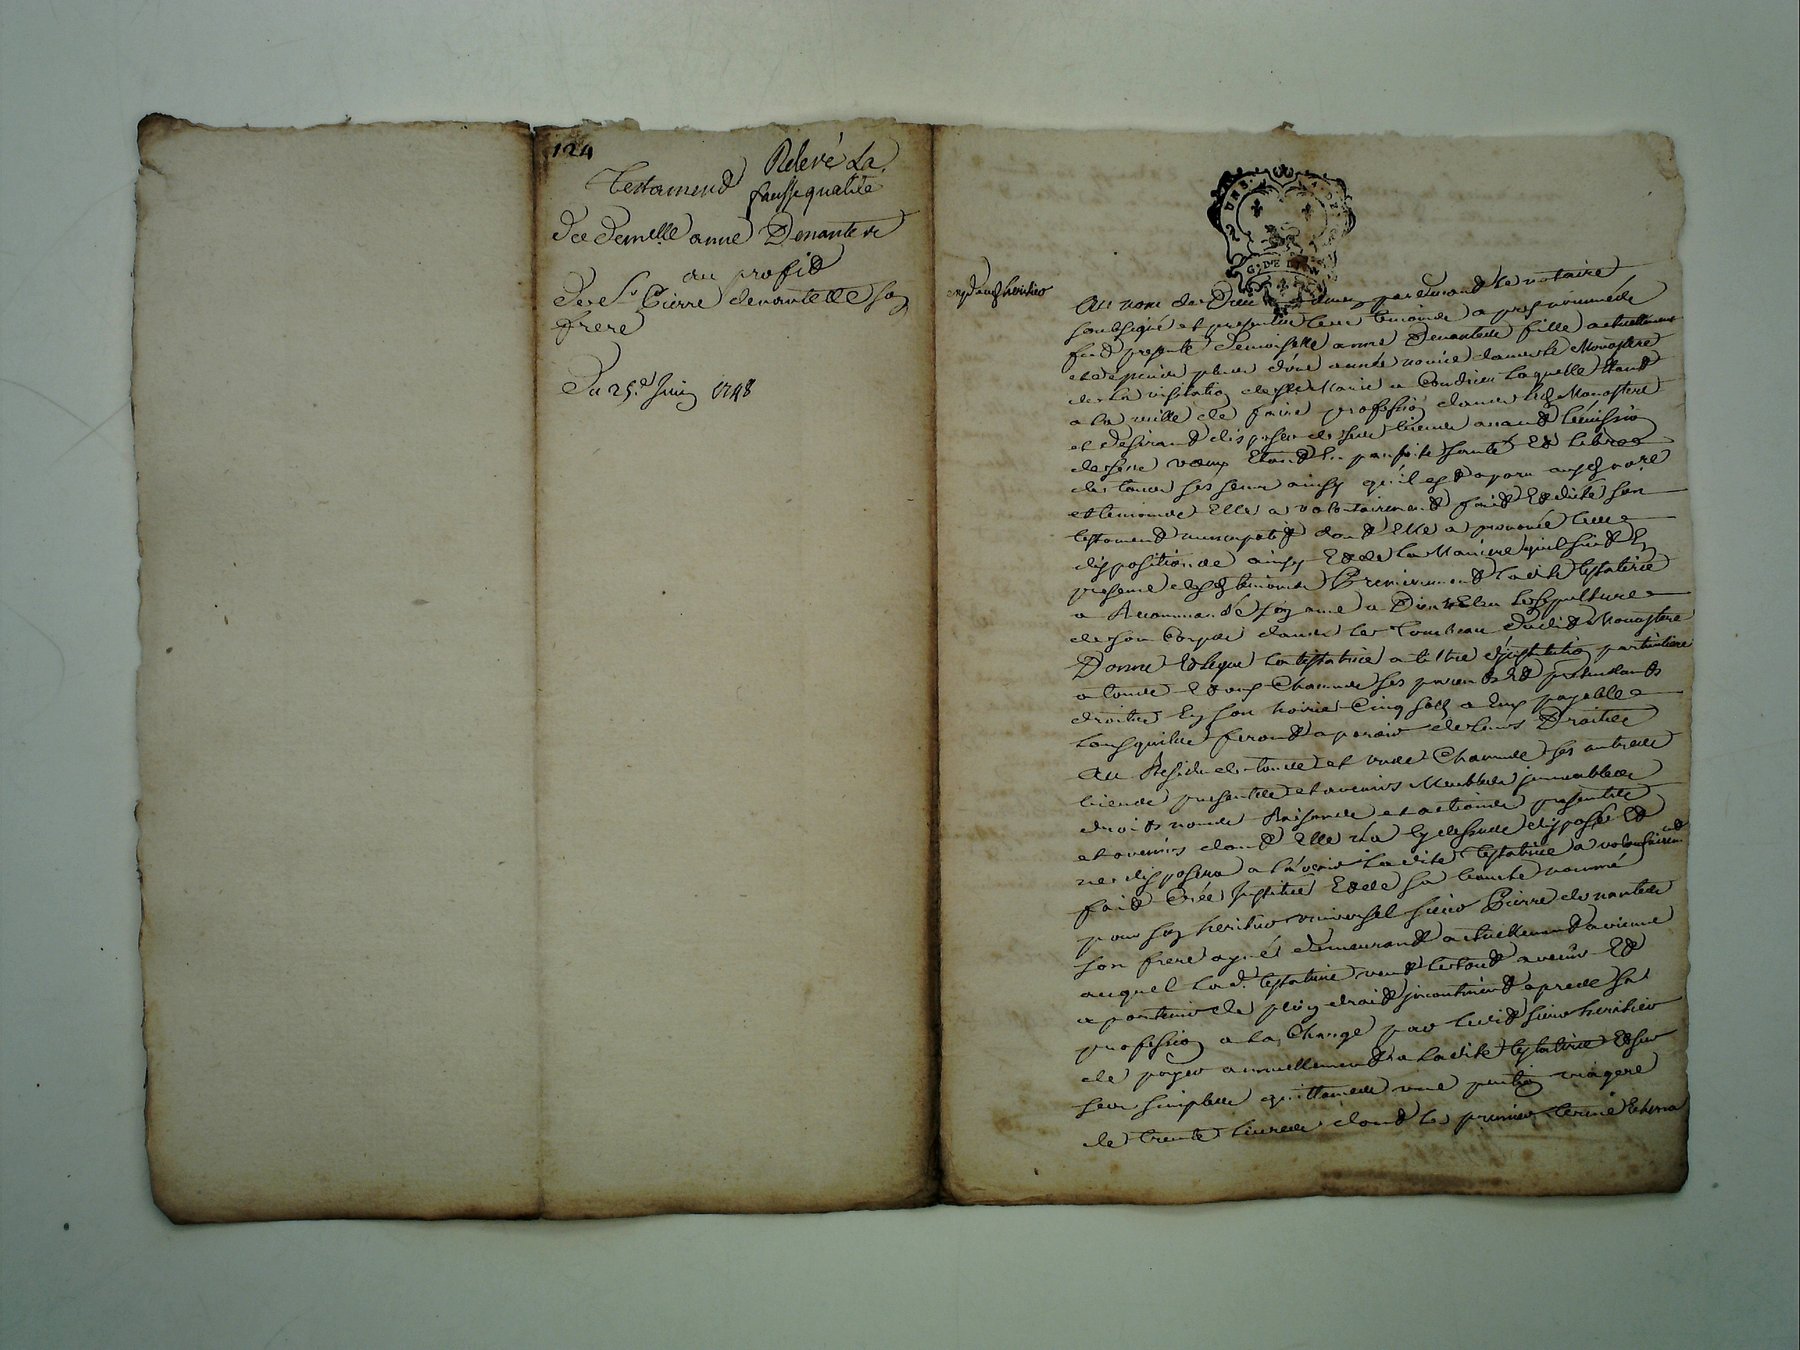 124
Relevé La
fausse qualité
Testament
De Demlle anne Denantes
au profit
De Sr Pierre denantes son
frere
Du 25e Juin 1748
expd aud heritier
GEN. DE LYON
Au nom de Dieu amen pardevant le notaire
soubsigné et presents les temoins apres nommés
fut presente demoiselle anne Denantes fille actuellement
et depuis plus d'une année novice dans le Monastere
de la visitation de Ste Marie a Condrieu laquelle étant
a la veille de faire profession dans led Monastere
et desirant disposer de ses biens avant l'émission
de ses vœux Etant En parfaite santé Et Libre
de tous ses sens ainsy qu'il est aparu aud nore
et temoins Elle a volontairement fait Et dicté son
testament nuncupatif dont Elle a prononcé les
dispositions ainsy Et de la Maniere qu'il suit En
presence desd temoins Premierement ladite testatrice
a Recommandé son ame a Dieu Elu le sepulture
de son Corps dans le Tombeau dudit Monastere
Donne Et legue la testatrice a titre d'institution particuliere
a tous Et aux Chacuns ses parents Et pretendants
droits En son hoirie Cinq sols a Eux payables
Lorsquils feront aparoir de leurs Droits
Au Residu de tous et uns Chacuns ses autres
biens presents et avenirs Meubles immeubles
droits noms Raisons et actions presents
et avenirs dont Elle n'a cy dessus disposé Et
ne disposera a l'avenir Ladite testatrice a volontairement
fait Créé Institué Et de sa bouche nommé
pour son heritier universel sieur Pierre denantes
son frere ayné demeurant actuellement a vienne
auquel lad. testatrice veut le tout avenir Et
apartenir de plein droit incontinent apres sa
profession a la Charge par ledit sieur heritier
de payer annuellement a ladite testatrice Et sur
ses simples quittances une pention viagere
de trente livres dont le premier terme Echera